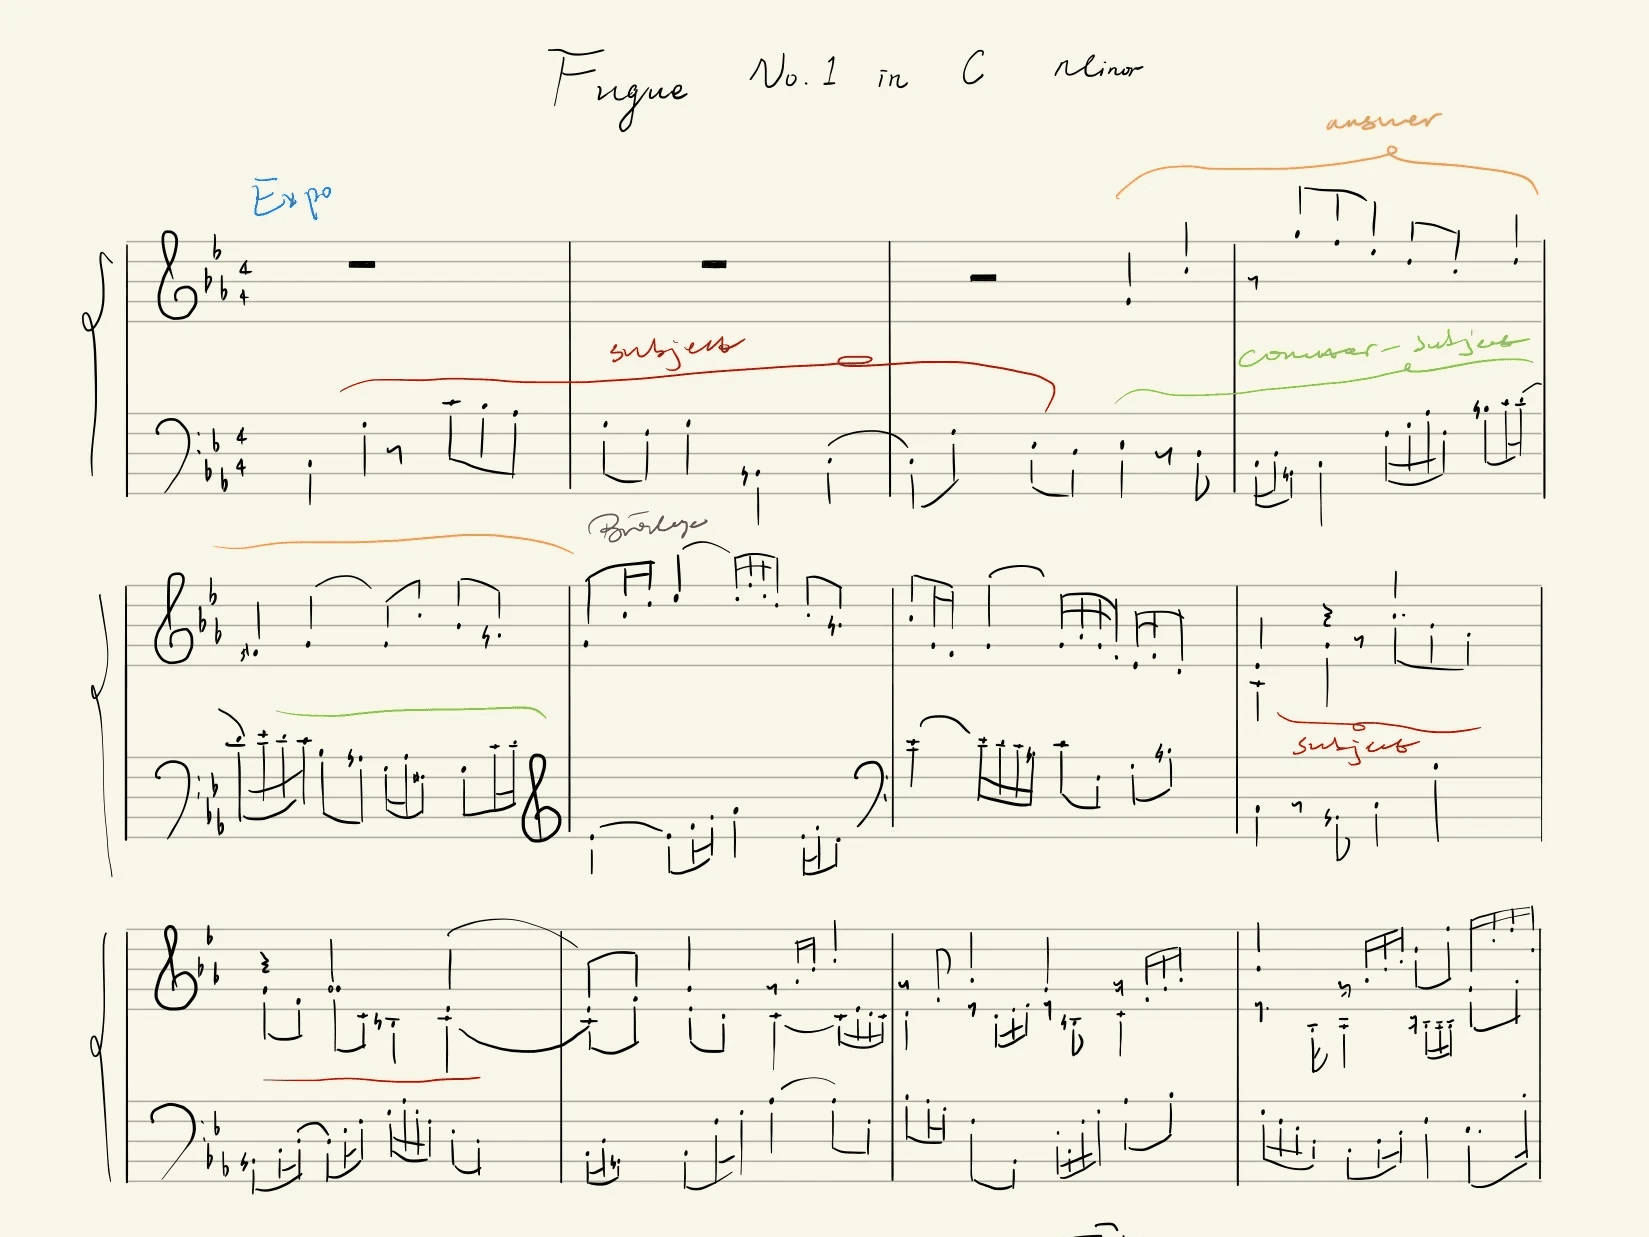 Fugue No. 1 in C Minor
answer
Expo
subject
counter-subject
Bridge
subject